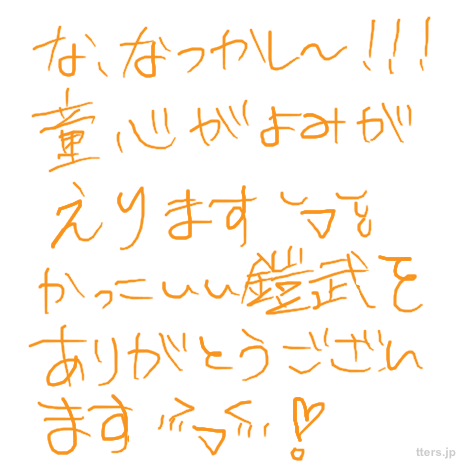 な、なつかし〜!!!
童心がよみが
えります
かっこいい鎧武を
ありがとうござい
ます!
tters.jp